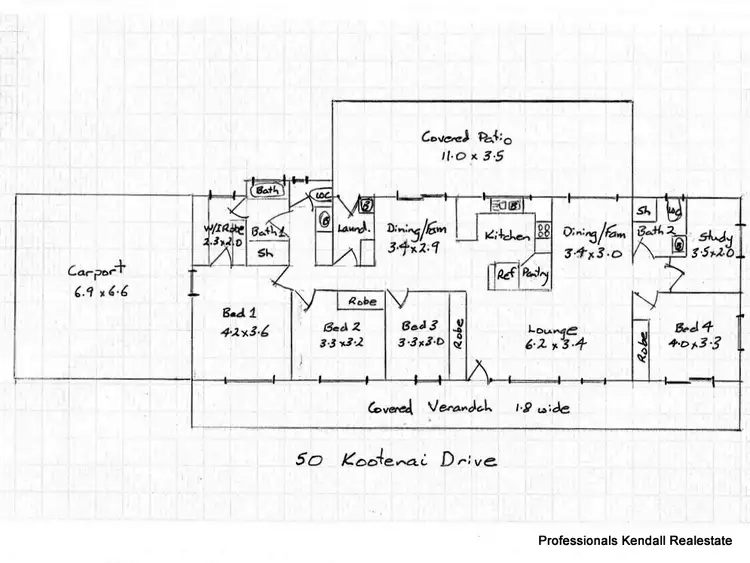 Covered Patio
11.0 x 3.5
Bath
WC
W/I Robe
2.3x2.0
Bath 1
Sh
B
Laund.
B
Dining/Fam
3.4 x 2.9
B
Kitchen
Ref
Pantry
Dining/Fam
3.4 x 3.0
Sh
WC
Bath 2
B
Study
3.5x2.0
Carport
6.9 x 6.6
Bed 1
4.2x3.6
Robe
Bed 2
3.3x3.2
Bed 3
3.3x3.0
Robe
Lounge
6.2 x 3.4
Robe
Bed 4
4.0x3.3
Covered Verandah 1.8 wide
50 Kootenai Drive
Professionals Kendall Realestate